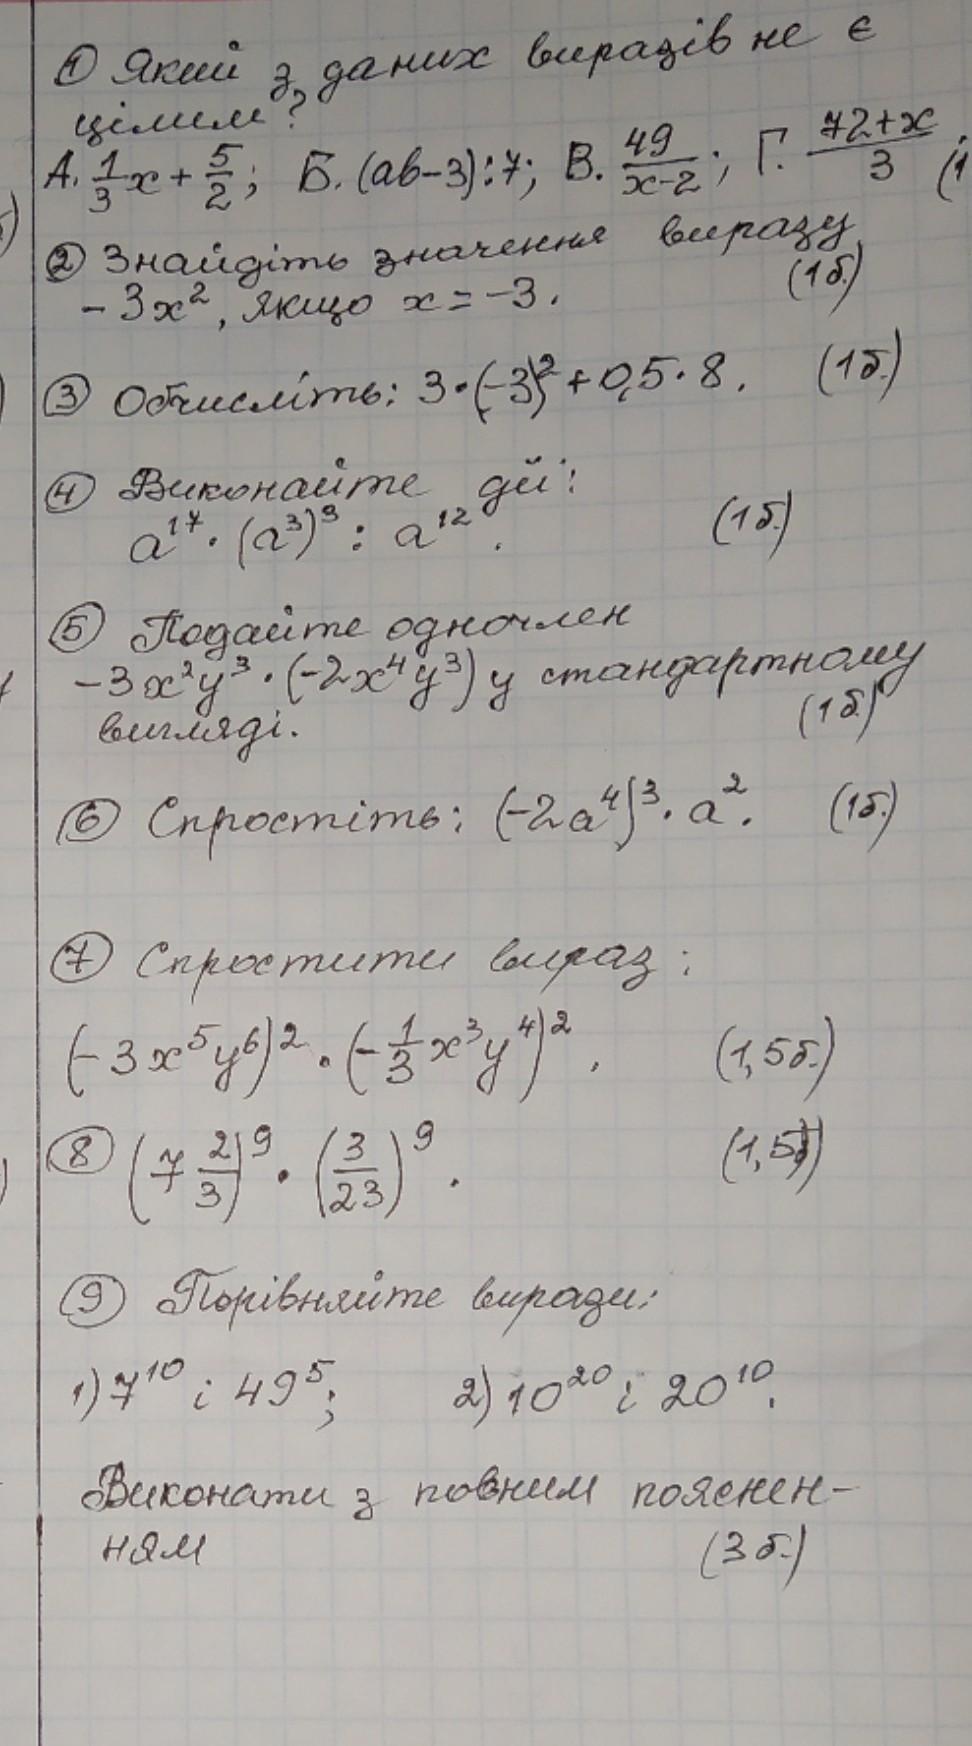 ① Який з даних виразів не є
цілим?
А. 1/3 x + 5/2; Б. (ab-3):7; В. 49/(x-2); Г. (72+x)/3. (1
② Знайдіть значення виразу
-3x², якщо x = -3. (1б.)
③ Обчисліть: 3·(-3)² + 0,5·8. (1б.)
④ Виконайте дії:
a¹⁷·(a³)³ : a¹². (1б)
⑤ Подайте одночлен
-3x²y³·(-2x⁴y³) у стандартному
вигляді. (1б)
⑥ Спростіть: (-2a⁴)³·a². (1б.)
⑦ Спростити вираз:
(-3x⁵y⁶)²·(-1/3 x³y⁴)². (1,5б.)
⑧ (7 2/3)⁹·(3/23)⁹. (1,5б)
⑨ Порівняйте вирази:
1) 7¹⁰ і 49⁵; 2) 10²⁰ і 20¹⁰.
Виконати з повним пояснен-
ням (3б.)